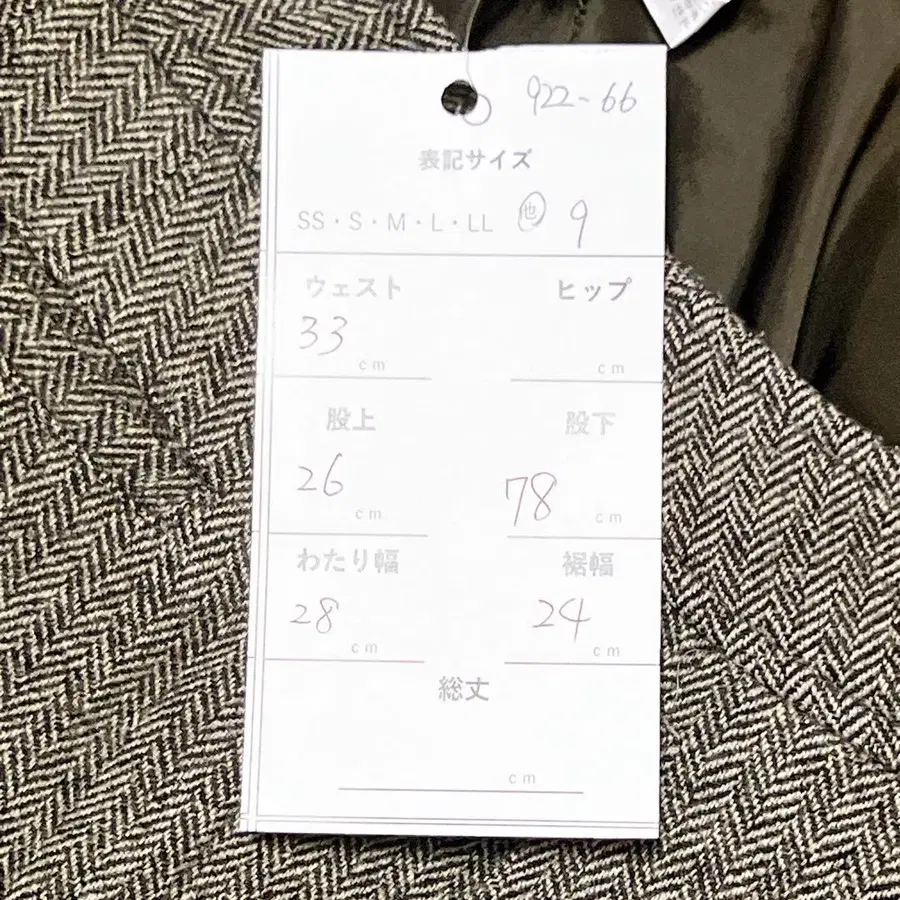 922-66
表記サイズ
SS・S・M・L・LL 他 9
ウェスト ヒップ
33 cm cm
股上 股下
26 cm 78 cm
わたり幅 裾幅
28 cm 24 cm
総丈
cm